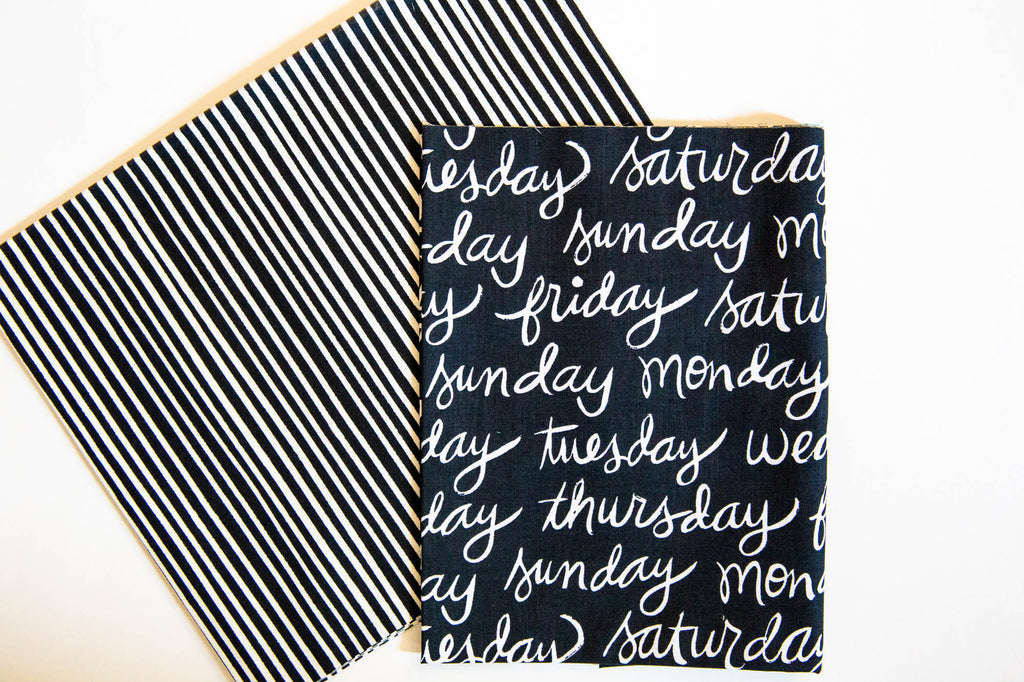 uesday saturday
day sunday mo
ay friday satu
sunday monday
day tuesday wed
day thursday f
ay sunday mon
uesday saturday